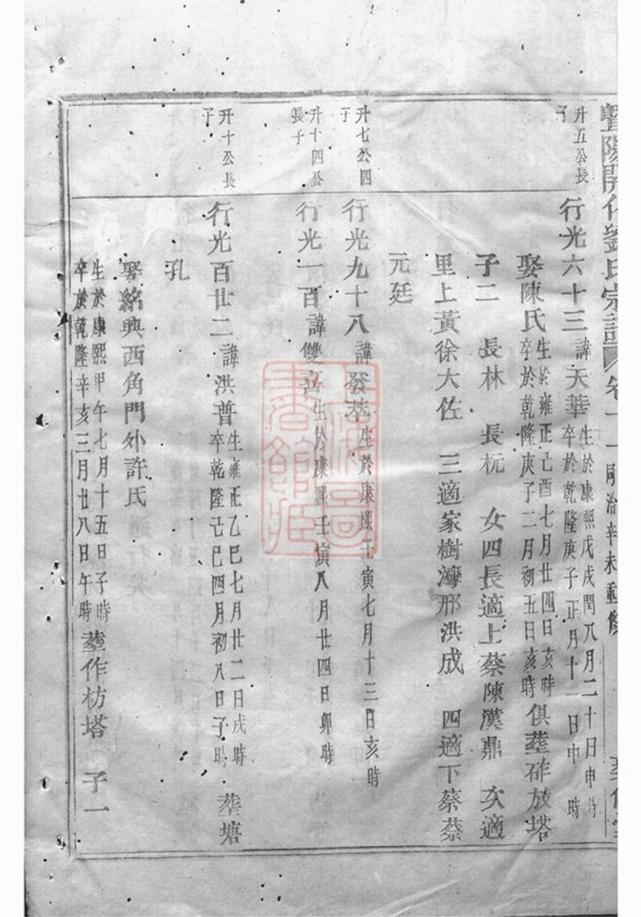 暨陽開化劉氏宗譜 卷十一 同治辛未重修
升五公長子
行光六十三 諱天華 生於康熙戊戌閏八月二十日申時 卒於乾隆庚子正月十一日申時
娶陳氏 生於雍正己酉七月廿四日亥時 卒於乾隆庚子二月初五日亥時 俱葬砟放塔
子二 長林 長杬 女四長適上蔡陳漢鼎 次適
里上黃徐大佐 三適家樹灣邢洪成 四適下蔡蔡
元廷
升七公四子
行光九十八 諱發 生於康熙壬寅七月十三日亥時
升十四公長子
行光一百 諱雙喜 生於康熙壬寅八月廿四日卯時
升十公長子
行光百廿二 諱洪普 生雍正乙巳七月廿二日戌時 卒乾隆己巳四月初八日子時 葬塘
孔
娶紹興西角門外許氏
生於康熙甲午七月十五日子時 卒於乾隆辛亥三月廿八日午時 葬作枋塔 子一